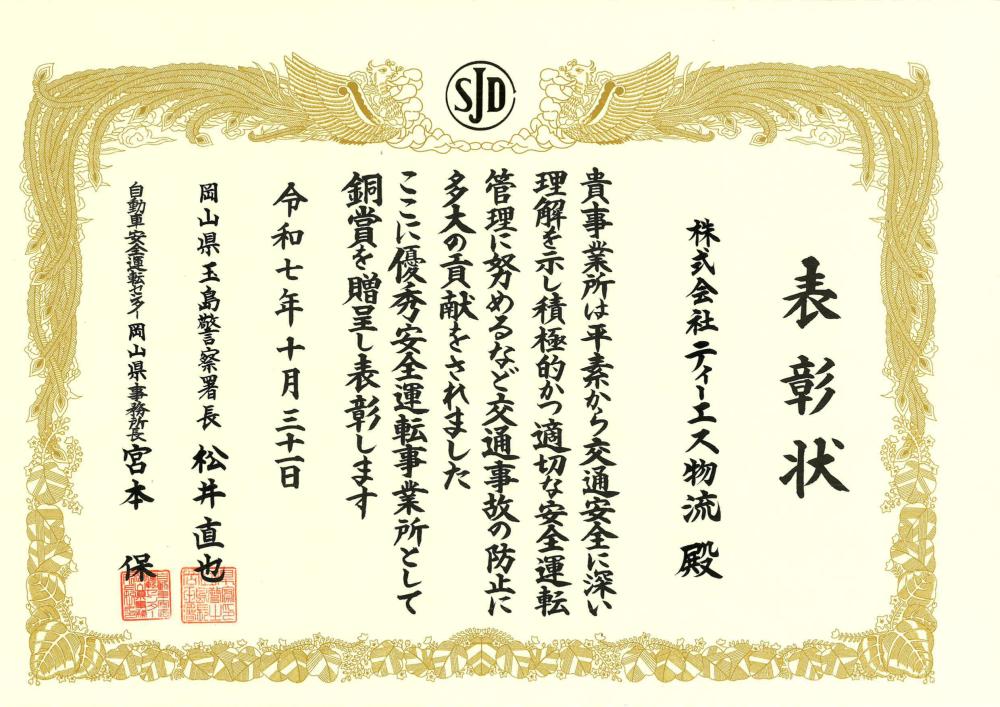 SJD
表彰状
株式会社ティーエス物流 殿
貴事業所は平素から交通安全に深い
理解を示し積極的かつ適切な安全運転
管理に努めるなど交通事故の防止に
多大の貢献をされました
ここに優秀安全運転事業所として
銅賞を贈呈し表彰します
令和七年十月三十一日
岡山県玉島警察署長 松井直也
自動車安全運転センター岡山県事務所長 宮本 保